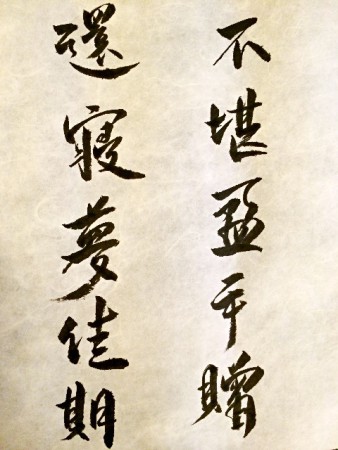 不堪盈手贈
還寢夢佳期